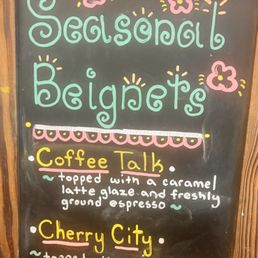 Seasonal
Beignets
• Coffee Talk •
~ topped with a caramel
latte glaze and freshly
ground espresso ~
• Cherry City •